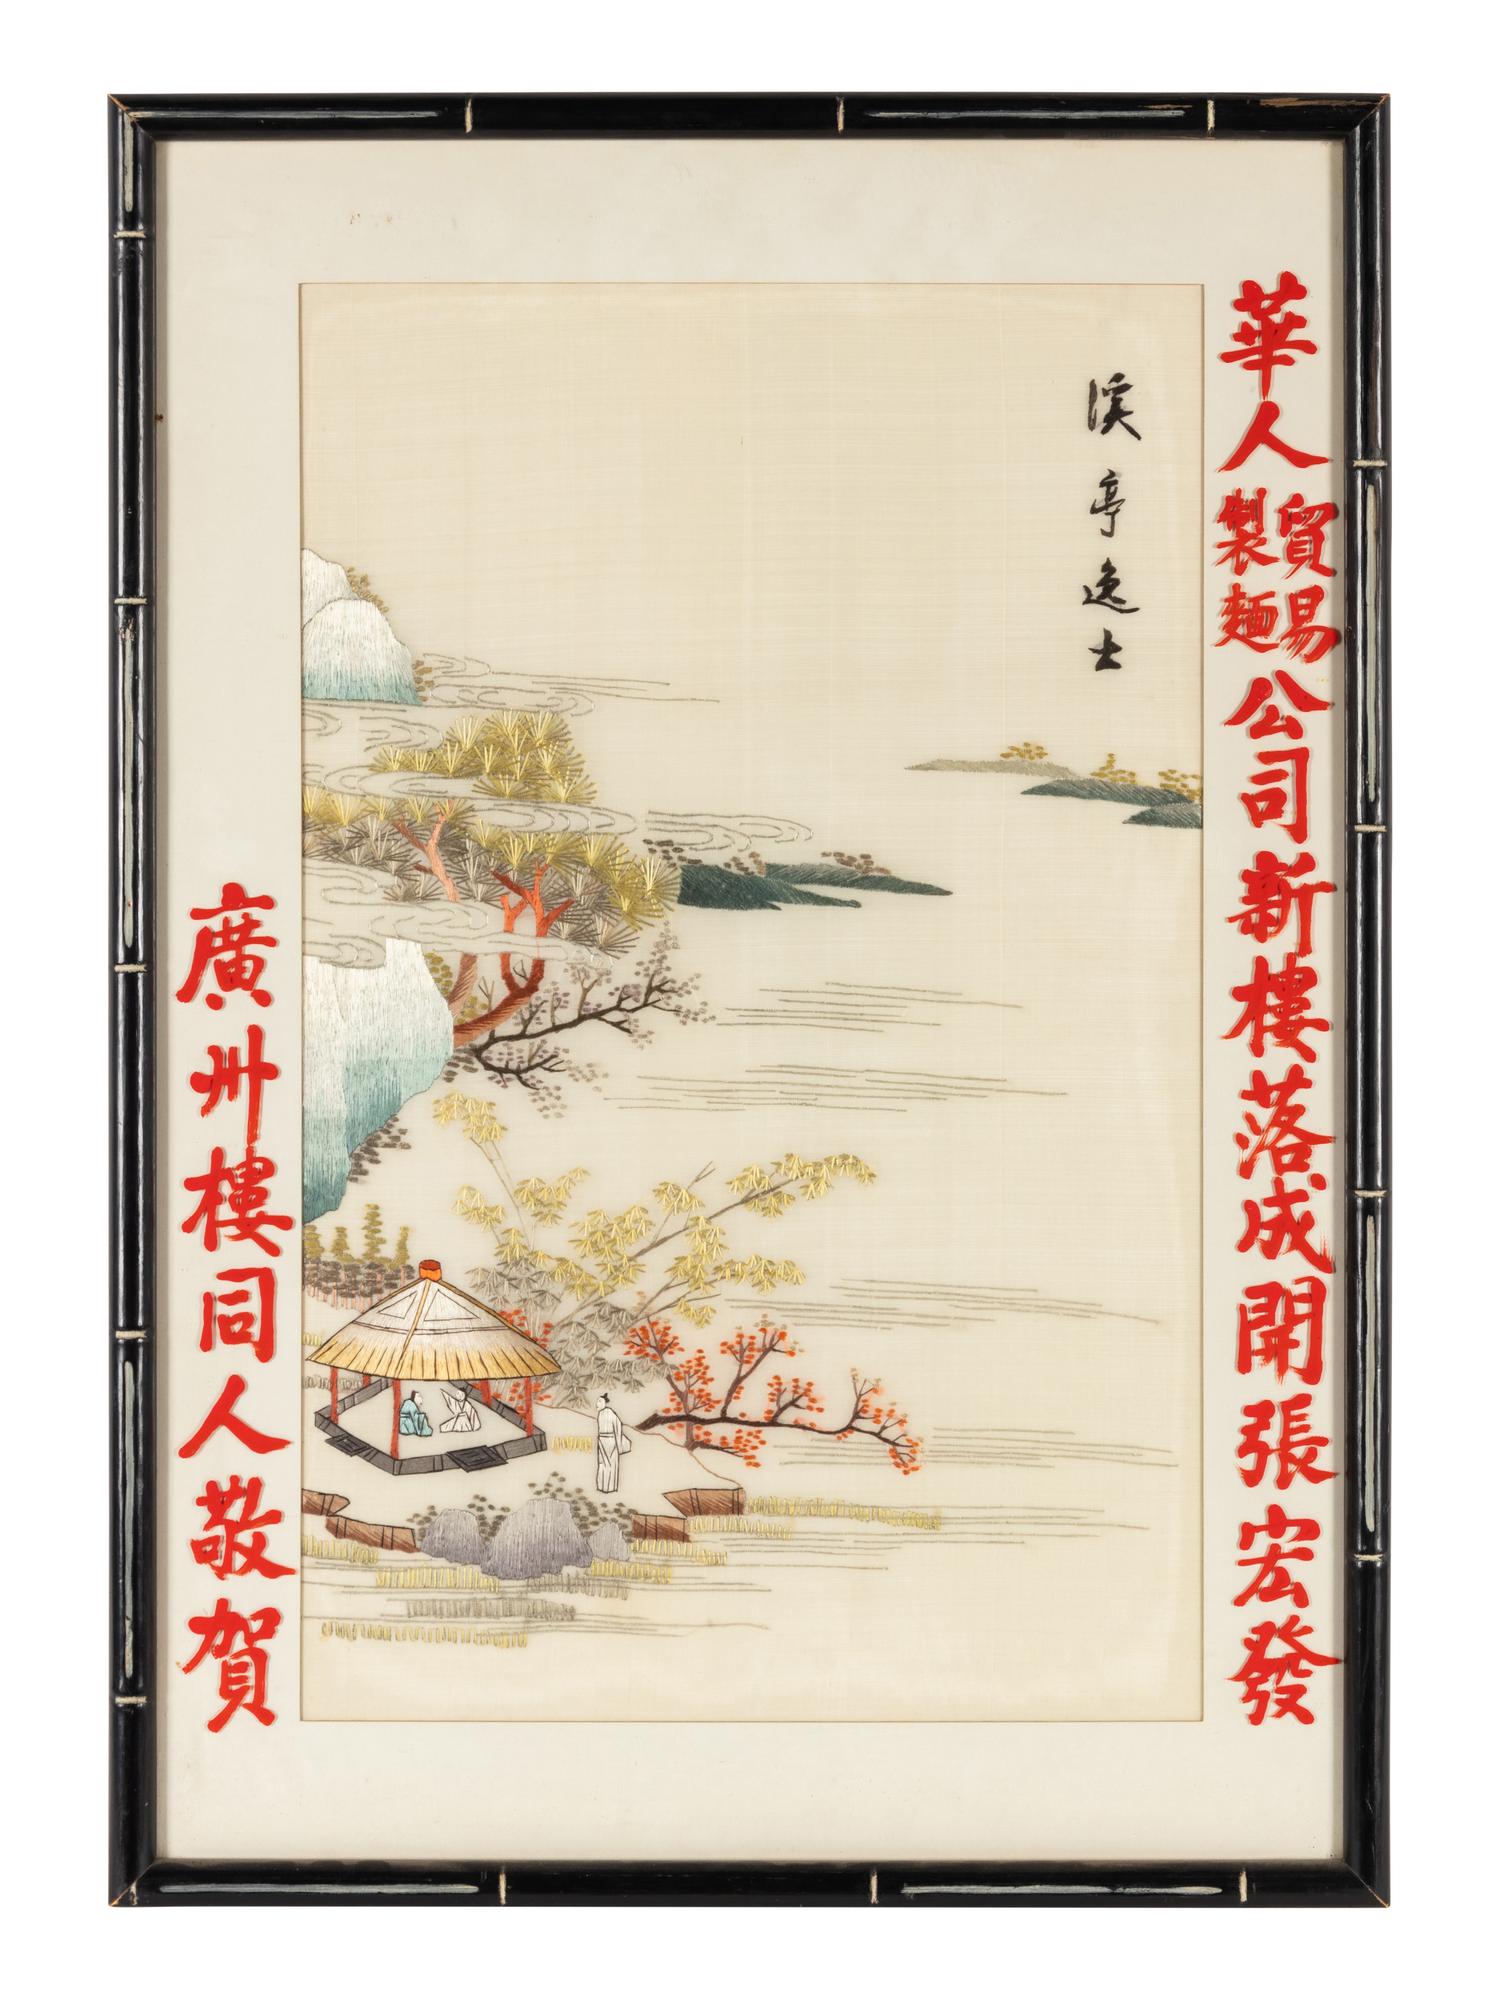 華人
貿易
製麵
公司新樓落成開張宏發
溪亭逸士
廣州樓同人敬賀